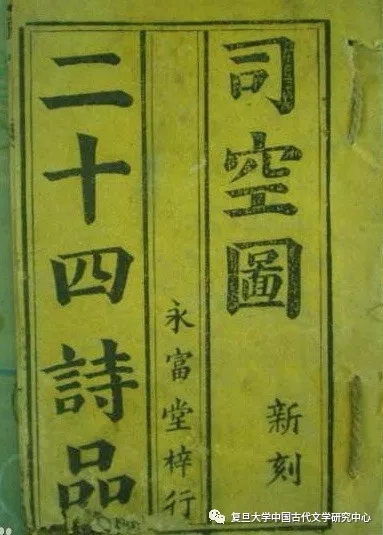 司空圖
新刻
永富堂梓行
二十四詩品
复旦大学中国古代文学研究中心